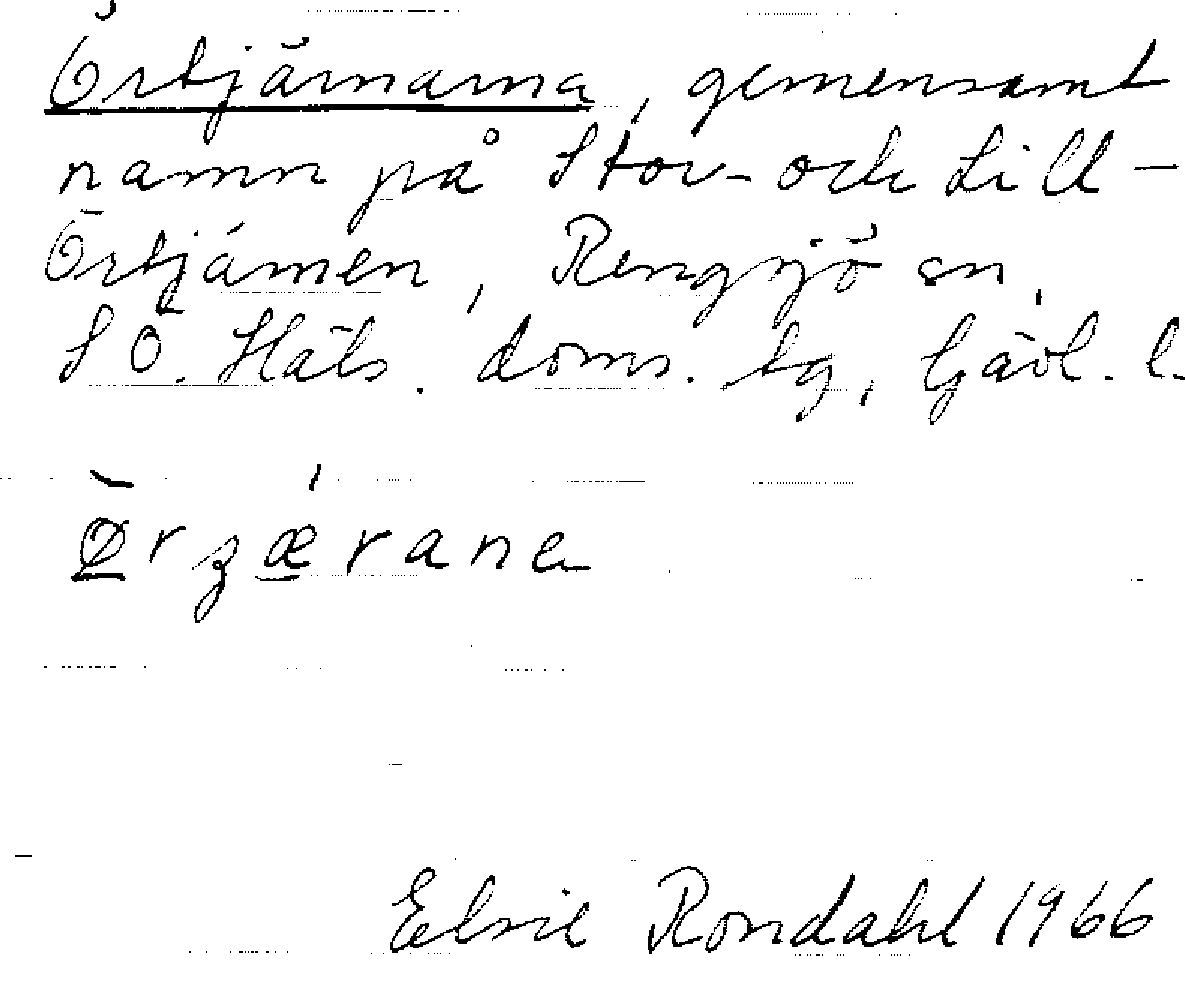 Örtjärnarna, gemensamt
namn på Stor- och Lill-
Örtjärnen, Rengsjö sn,
SÖ. Häls. doms. tg, Gävl. l.
Ørzærana
Elsie Rondahl 1966